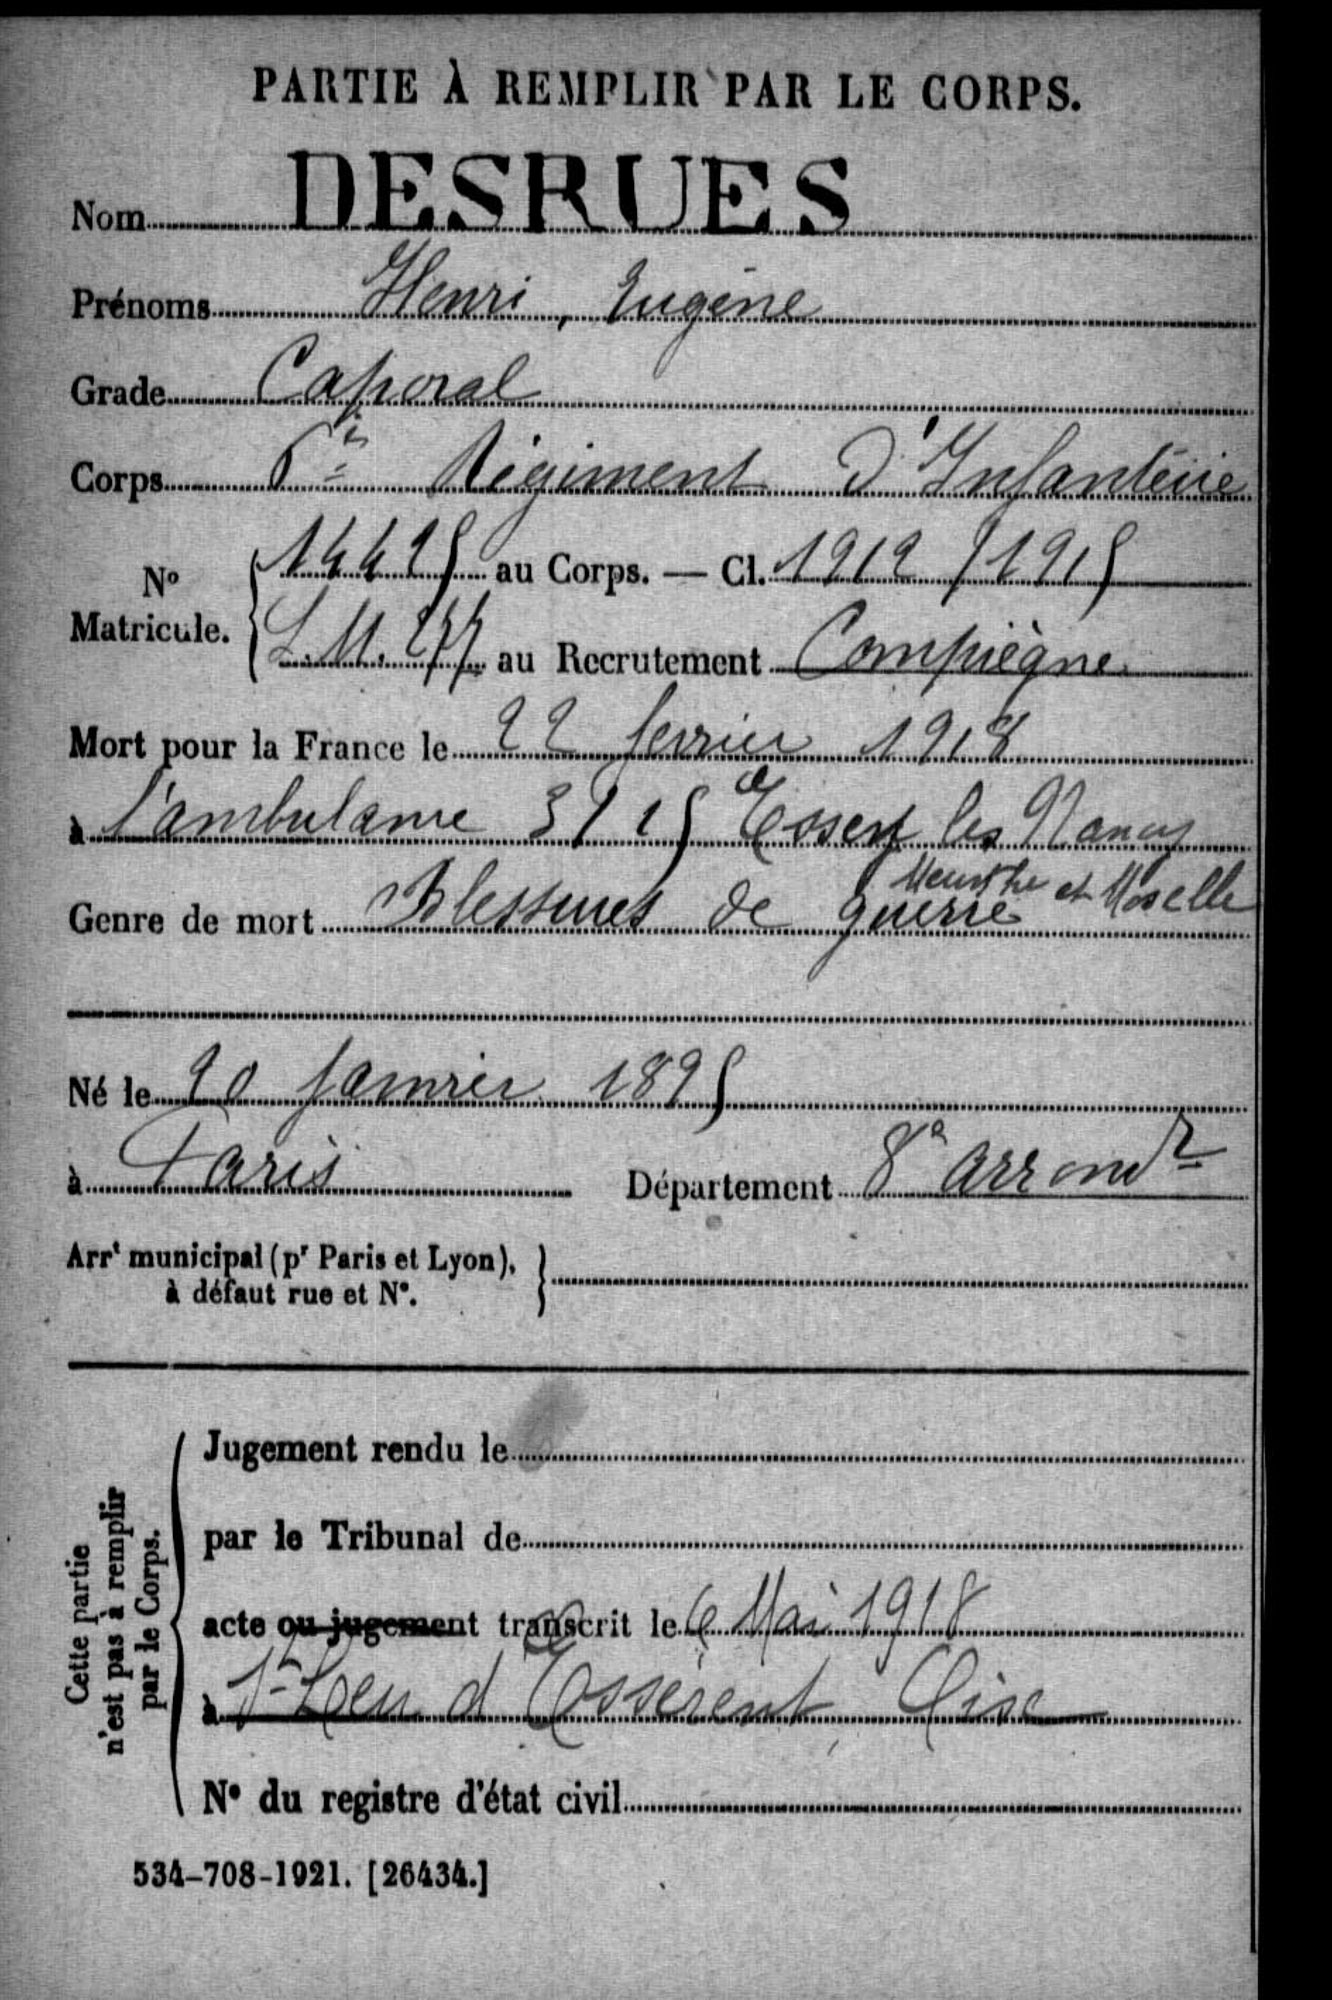 PARTIE À REMPLIR PAR LE CORPS.
Nom DESRUES
Prénoms Henri, Eugène
Grade Caporal
Corps Régiment d'Infanterie
Nº Matricule. 14425 au Corps. — Cl. 1912 / 1915
L.M. 277 au Recrutement Compiègne
Mort pour la France le 22 fevrier 1918
à l'ambulance 3/15 Essey les Nancy
Meurthe et Moselle
Genre de mort Blessures de guerre
Né le 20 Janvier 1895
à Paris Département 8e arrondt
Arrt municipal (pr Paris et Lyon),
à défaut rue et Nº.
Cette partie
n'est pas à remplir
par le Corps.
Jugement rendu le
par le Tribunal de
acte ou jugement transcrit le 6 Mai 1918
à St Leu d'Esserent, Oise
Nº du registre d'état civil
534-708-1921. [26434.]